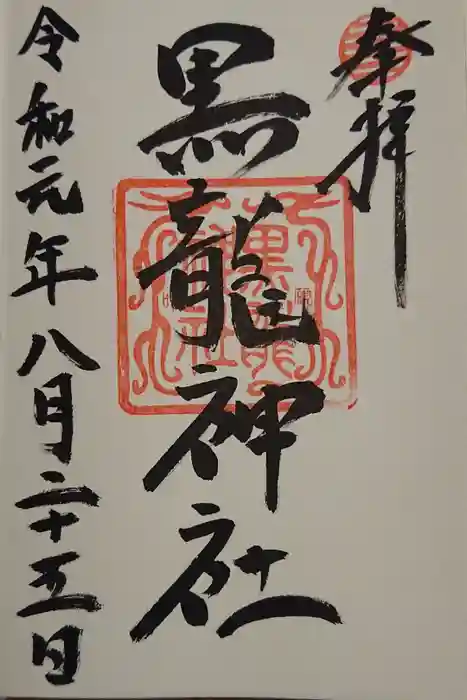 奉拝
黒龍神社
令和元年八月二十五日